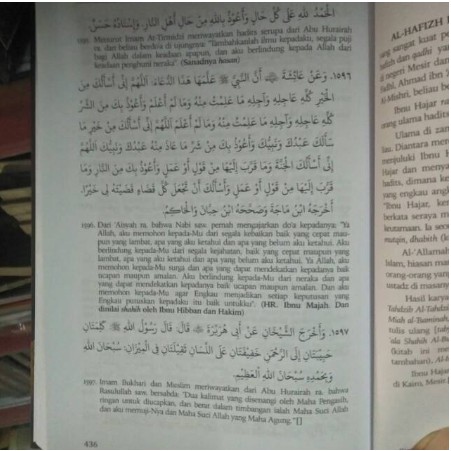 الْحَمْدُ لِلَّهِ عَلَى كُلِّ حَالٍ وَأَعُوذُ بِاللَّهِ مِنْ حَالِ أَهْلِ النَّارِ. وَإِسْنَادُهُ حَسَنٌ.
Menurut Imam At-Tirmidzi meriwayatkan hadits serupa dari Abu Hurairah
ra. dan beliau berdo'a di ujungnya "Tambahkanlah ilmu kepadaku, segala puji
bagi Allah dalam keadaan apapun, dan aku berlindung kepada Allah dari
keadaan penghuni neraka". (Sanadnya hasan)
١٥٩٦. وَعَنْ عَائِشَةَ أَنَّ النَّبِيَّ ﷺ عَلَّمَهَا هَذَا الدُّعَاءَ: اَللَّهُمَّ إِنِّي أَسْأَلُكَ مِنَ
الْخَيْرِ كُلِّهِ عَاجِلِهِ وَآجِلِهِ مَا عَلِمْتُ مِنْهُ وَمَا لَمْ أَعْلَمْ وَأَعُوذُ بِكَ مِنَ الشَّرِّ
كُلِّهِ عَاجِلِهِ وَآجِلِهِ مَا عَلِمْتُ مِنْهُ وَمَا لَمْ أَعْلَمْ اَللَّهُمَّ إِنِّي أَسْأَلُكَ مِنْ خَيْرِ مَا
سَأَلَكَ عَبْدُكَ وَنَبِيُّكَ وَأَعُوذُ بِكَ مِنْ شَرِّ مَا عَاذَ مِنْهُ عَبْدُكَ وَنَبِيُّكَ اَللَّهُمَّ
إِنِّي أَسْأَلُكَ الْجَنَّةَ وَمَا قَرَّبَ إِلَيْهَا مِنْ قَوْلٍ أَوْ عَمَلٍ وَأَعُوذُ بِكَ مِنَ النَّارِ وَمَا
قَرَّبَ إِلَيْهَا مِنْ قَوْلٍ أَوْ عَمَلٍ وَأَسْأَلُكَ أَنْ تَجْعَلَ كُلَّ قَضَاءٍ قَضَيْتَهُ لِي خَيْرًا.
أَخْرَجَهُ ابْنُ مَاجَةْ وَصَحَّحَهُ ابْنُ حِبَّانَ وَالْحَاكِمُ.
1596. Dari 'Aisyah ra. bahwa Nabi saw. pernah mengajarkan do'a kepadanya: "Ya
Allah, aku memohon kepada-Mu dari segala kebaikan baik yang cepat mau-
pun yang lambat, apa yang aku ketahui dan apa yang belum aku ketahui. Aku
berlindung kepada-Mu dari segala kejahatan, baik yang cepat maupun yang
lambat, apa yang aku ketahui dan apa yang belum aku ketahui. Ya Allah, aku
memohon kepada-Mu surga dan apa yang dapat mendekatkan kepadanya baik
ucapan maupun amalan. Aku berlindung kepada-Mu dari neraka dan apa
yang dapat mendekatkan kepadanya baik ucapan maupun amalan. Dan aku
memohon kepada-Mu agar Engkau menjadikan setiap keputusan yang
Engkau putuskan kepadaku itu baik untukku". (HR. Ibnu Majah. Dan
dinilai shahih oleh Ibnu Hibban dan Hakim)
١٥٩٧. وَأَخْرَجَ الشَّيْخَانِ عَنْ أَبِي هُرَيْرَةَ قَالَ: قَالَ رَسُولُ اللَّهِ ﷺ كَلِمَتَانِ
حَبِيبَتَانِ إِلَى الرَّحْمَنِ خَفِيفَتَانِ عَلَى اللِّسَانِ ثَقِيلَتَانِ فِي الْمِيزَانِ: سُبْحَانَ اللَّهِ
وَبِحَمْدِهِ سُبْحَانَ اللَّهِ الْعَظِيْمِ.
1597. Imam Bukhari dan Muslim meriwayatkan dari Abu Hurairah ra. bahwa
Rasulullah saw. bersabda: "Dua kalimat yang disenangi oleh Maha Pengasih,
ringan untuk diucapkan, dan berat dalam timbangan ialah Maha Suci Allah
dan aku memuji-Nya dan Maha Suci Allah yang Maha Agung."[]
436
AL-HAFIZH I
yang sangat kuat pe
dan qadhi yang
di negeri Mesir dan
Ahmad ibn
Al-Mishri,
Ibnu Hajar
orang ulama hadits
Utama di zam
Diantara
menjuluki Ibnu
Hajar dan menya
hadits, dimana ke
yang engkau angka
"Ibnu Hajar,
berkata seraya m
keutamaan. Ia seo
mutqin, dhabith (k
Al-'Allamah
Islam, hiasan
orang-orang yang
ustadz di masanya
Hasil karya
Tahdzib Al-Tahdz
tulis ulang
Shahih Al-Bu
(kitab ini me
tambahan).
Ibnu Hajar
di Kairo, Mesir